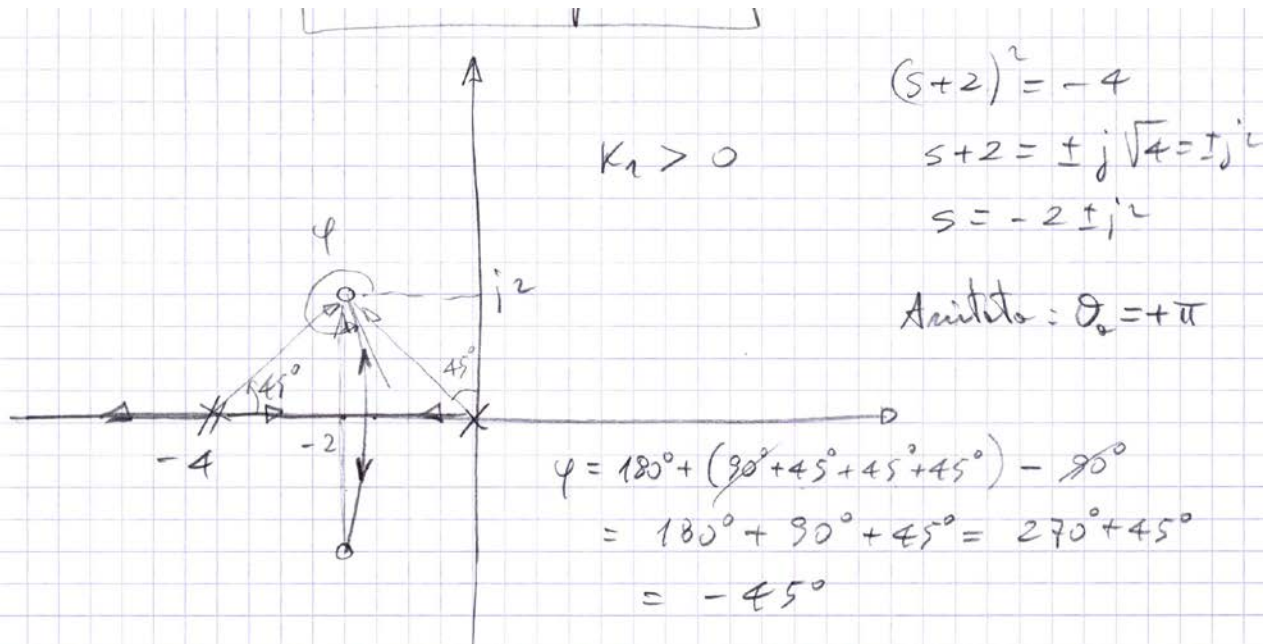 (s+2)² = -4
K₁ > 0
s+2 = ± j √4 = ± j2
s = -2 ± j2
φ
j2
Asintoto : ϑₐ = +π
45°
45°
-4
-2
φ = 180° + (90° + 45° + 45° + 45°) - 90°
= 180° + 90° + 45° = 270° + 45°
= -45°